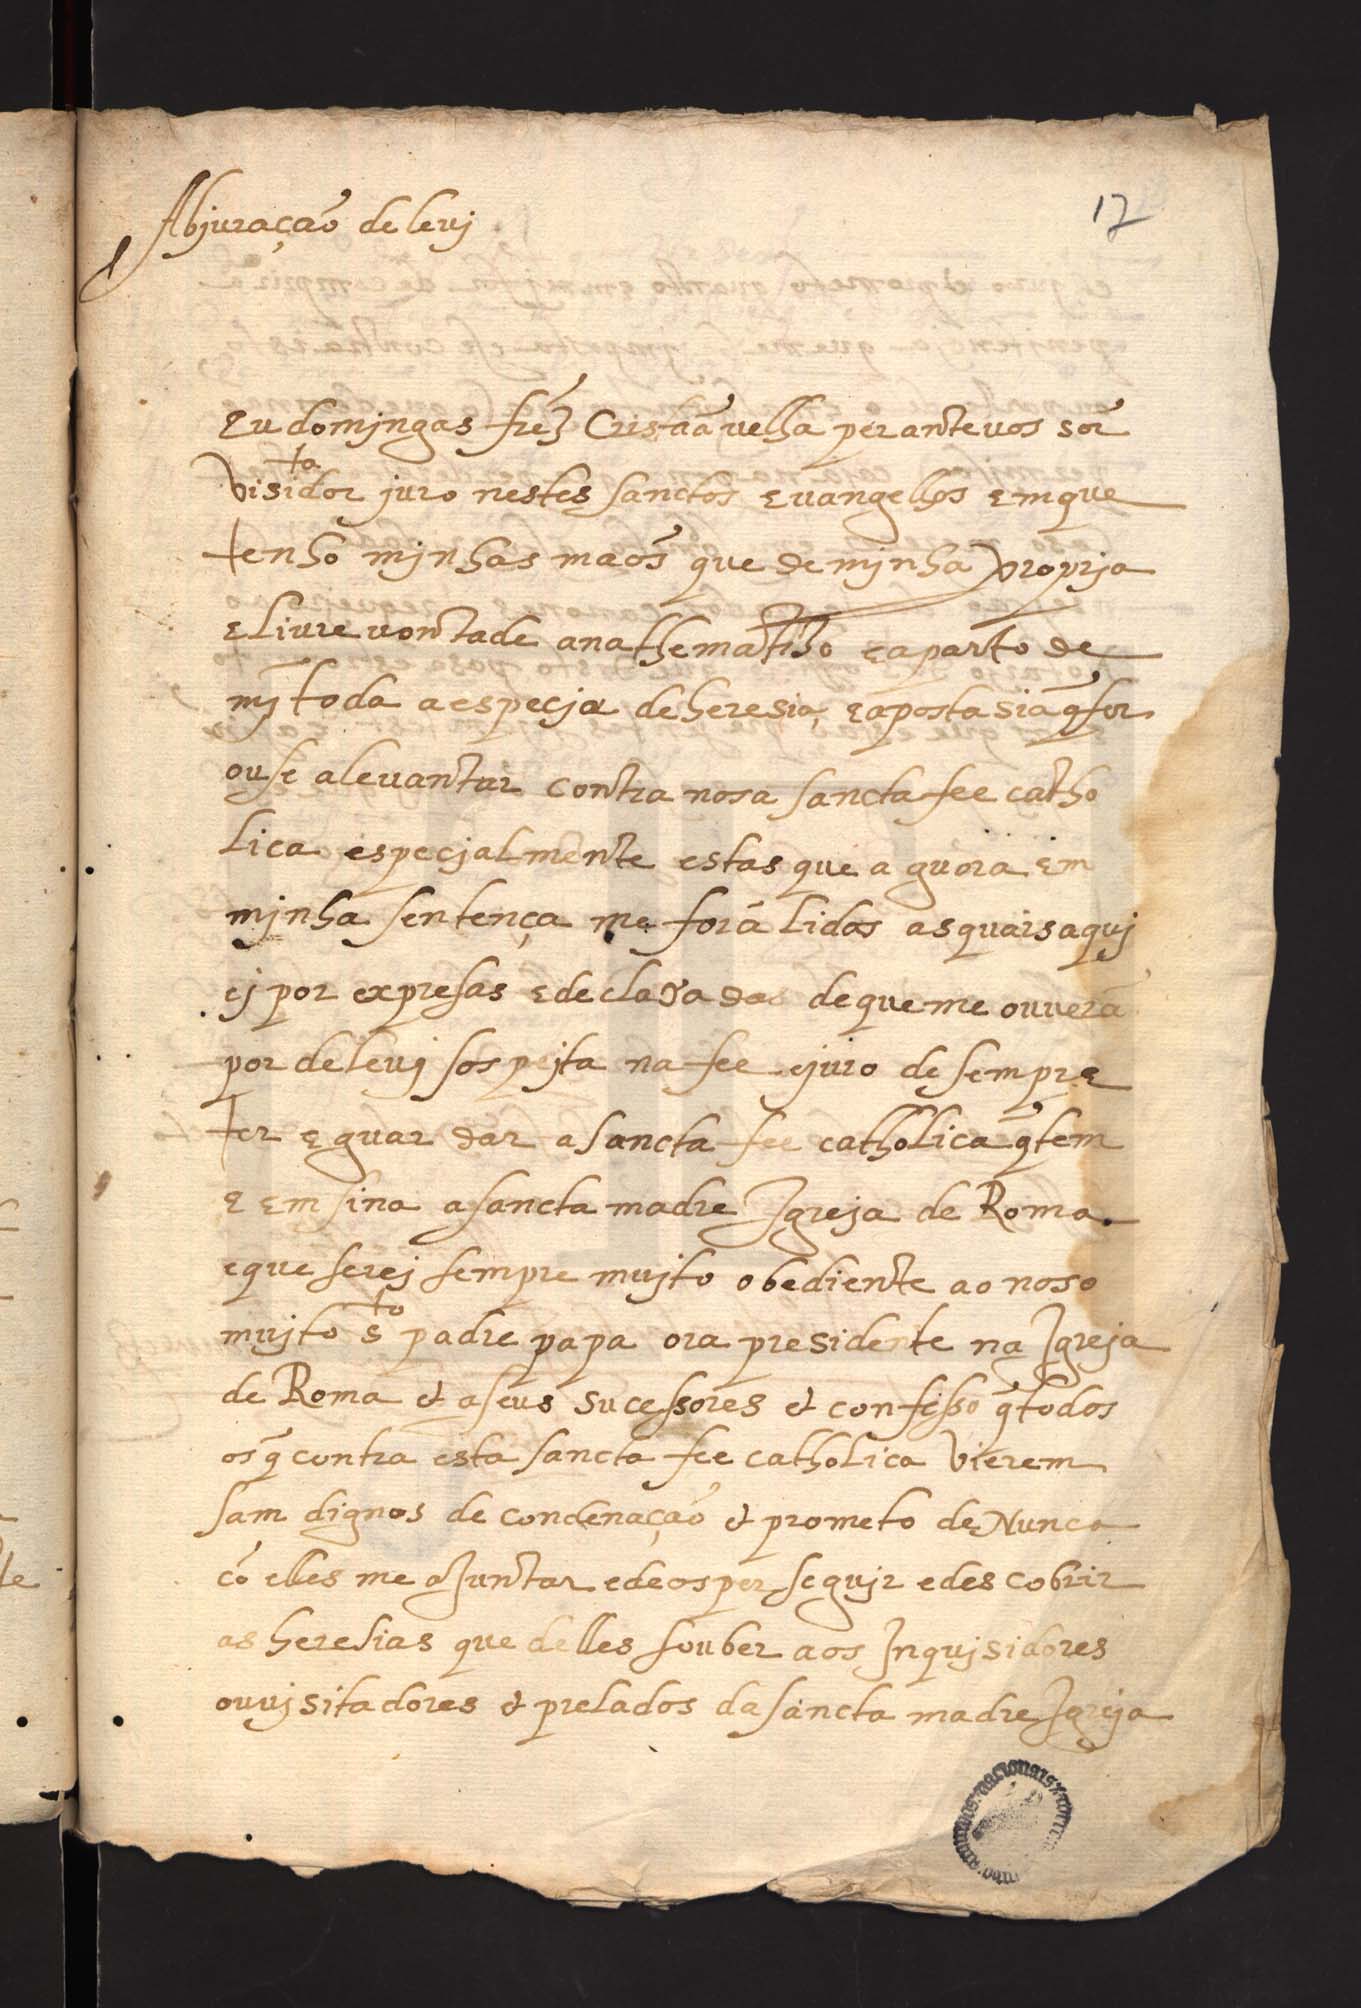 17
Abjuração de levj
Eu domingas frz̃ Cristãa velha perante vos sõr
Visitador juro nestes sanctos evangelhos em que
tenho mjnhas maõs que de mjnha propria
e livre vontade anathematizo e aparto de
mj̃ toda a especja de heresia, e apostasia q̃ for
ou se alevantar contra nosa sancta fee catho
lica especjalmente estas que aguora em
mjnha sentença me forã lidas as quais aquj
ej por expresas e declaradas de que me ouverã
por de levj sospejta na fee e juro de sempre
ter e guardar a sancta fee catholica q̃ tem
e emsina a sancta madre Igreja de Roma.
e que serej sempre mujto obediente ao noso
mujto sto padre papa ora presidente na Igreja
de Roma & a seus sucessores & confesso q̃ todos
os q̃ contra esta sancta fee catholica vierem
sam dignos de condenação & prometo de Nunca
cõ elles me aJuntar e de os perseguir e descobrir
as heresias que delles souber aos Inqujsidores
ou vjsitadores & prelados da sancta madre Igreja